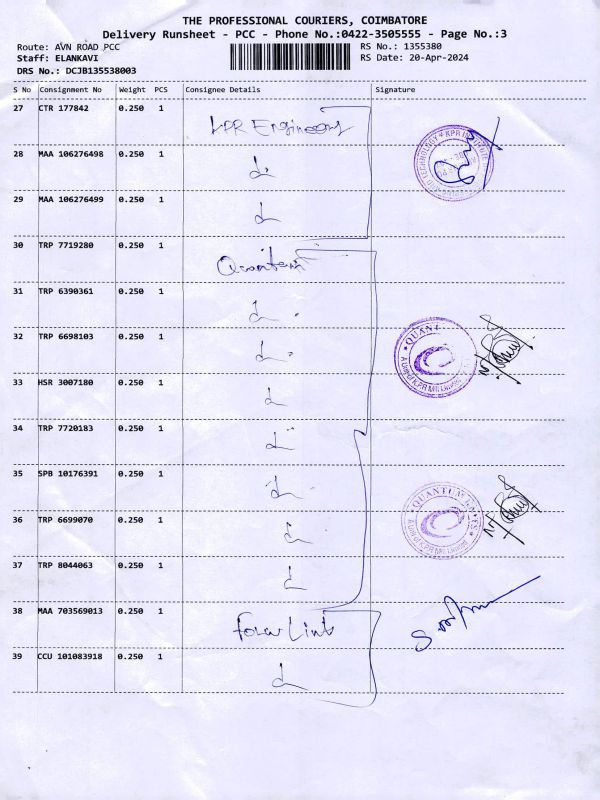 THE PROFESSIONAL COURIERS, COIMBATORE
Delivery Runsheet - PCC - Phone No.:0422-3505555 - Page No.:3
Route: AVN ROAD PCC
RS No.: 1355380
Staff: ELANKAVI
RS Date: 20-Apr-2024
DRS No.: DCJB135538003
S No Consignment No Weight PCS Consignee Details Signature
27 CTR 177842 0.250 1 KPR Engineers
28 MAA 106276498 0.250 1 d.
29 MAA 106276499 0.250 1 d
30 TRP 7719280 0.250 1 Quantum
31 TRP 6390361 0.250 1 d.
32 TRP 6698103 0.250 1 d.
QUANT
A Unit of K.P.R Mill Limited
33 HSR 3007180 0.250 1 d
34 TRP 7720183 0.250 1 d
35 SPB 10176391 0.250 1 d
QUANTUM KNITS
A Unit of K.P.R Mill Limited
36 TRP 6699070 0.250 1 d
37 TRP 8044063 0.250 1 d
38 MAA 703569013 0.250 1
39 CCU 101083918 0.250 1 d